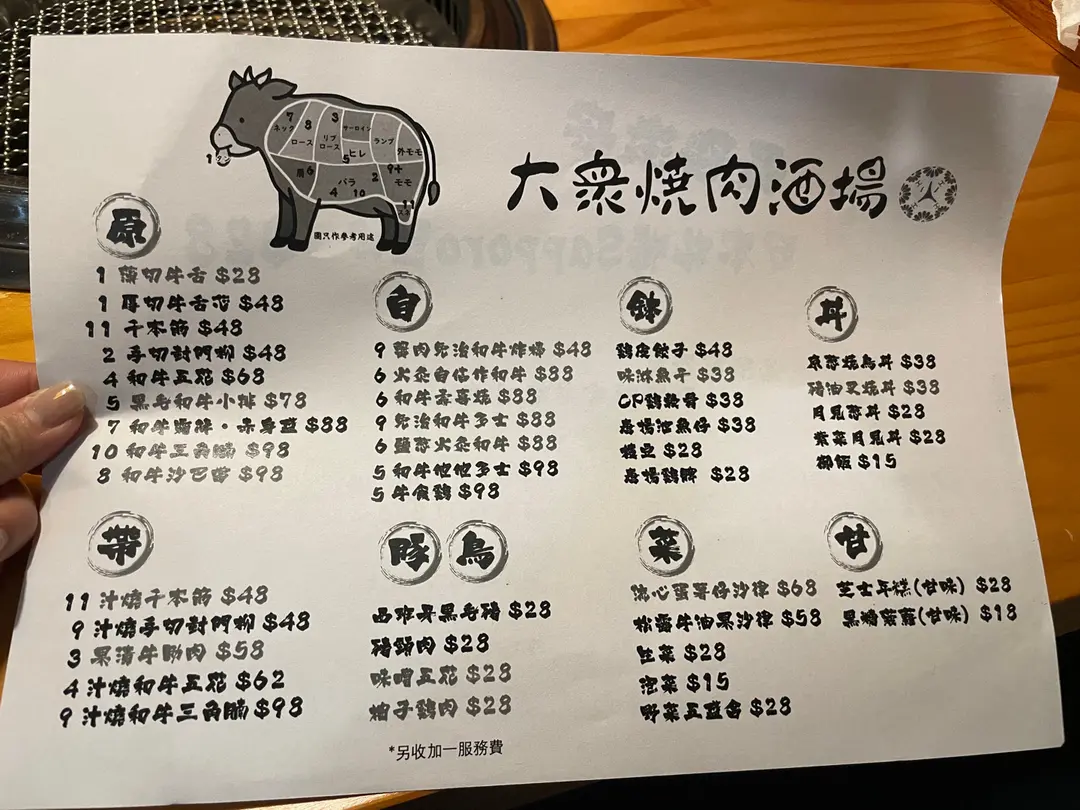 7 ネック
8 ロース
3 リブロース
サーロイン
5 ヒレ
ランプ
外モモ
1
肩 6
バラ
4 10
2
9+ モモ
11
圖只作參考用途
大衆焼肉酒場
原
1 薄切牛舌 $28
1 厚切牛舌芯 $48
11 千本筋 $48
2 手切封門柳 $48
4 和牛五花 $68
5 黑毛和牛小排 $78
7 和牛 · 赤身盛 $88
10 和牛三角腩 $98
8 和牛沙巴 $98
白
9 菜肉免治和牛炸 $48
6 火炙自作和牛 $88
6 和牛壽喜燒 $88
9 免治和牛多士 $88
6 鹽蔥火炙和牛 $88
5 和牛他他多士 $98
5 牛食鷄 $98
鉢
鷄皮餃子 $48
味淋魚干 $38
CP鷄軟骨 $38
唐揚池魚仔 $38
枝豆 $28
唐揚鷄髀 $28
丼
京葱燒鳥丼 $38
豬油叉燒丼 $38
月見葱丼 $28
紫菜月見丼 $28
御飯 $15
帶
11 汁燒千本筋 $48
9 汁燒手切封門柳 $48
3 果漬牛肋肉 $58
4 汁燒和牛五花 $62
9 汁燒和牛三角腩 $98
豚 鳥
西班牙黑毛豬 $28
豬頸肉 $28
味噌五花 $28
柚子鷄肉 $28
菜
流心蛋薯仔沙律 $68
松露牛油果沙律 $58
生菜 $28
泡菜 $15
野菜五盛合 $28
甘
芝士年糕(甘味) $28
黑糖紫薯(甘味) $18
*另收加一服務費